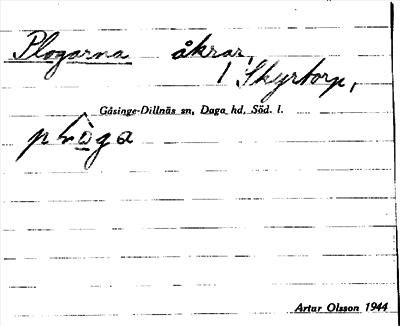 Plogarna åkrar,
1 Skyrtorp,
Gåsinge-Dillnäs sn, Daga hd, Söd. l.
Artur Olsson 1944